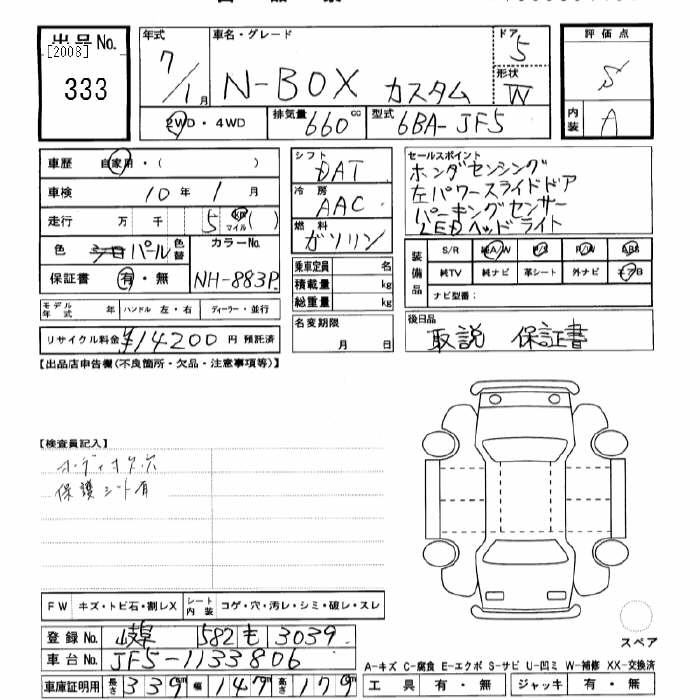 出品No.
[2008]
333
年式 7/1月
車名・グレード N-BOX カスタム
ドア 5
形状 W
2WD・4WD
排気量 660cc
型式 6BA-JF5
評価点 S
内装 A
車歴 自家用・( )
車検 10年 1月
走行 万 千 5 km マイル ( )
色 パール 色替
カラーNo. NH-883P
保証書 有・無
モデル年式 年 ハンドル 左・右 ディーラー・並行
リサイクル料金 ¥14200円 預託済
シフト DAT
冷房 AAC
燃料 ガソリン
乗車定員 名
積載量 kg
総重量 kg
名変期限 月 日
セールスポイント
ホンダセンシング
左パワースライドドア
パーキングセンサー
LEDヘッドライト
装備品
S/R 純A/W P/S P/W ABS
純TV 純ナビ 革シート 外ナビ エアB
ナビ型番:
後日品
取説 保証書
【出品店申告欄(不良箇所・欠品・注意事項等)】
【検査員記入】
オーディオ欠穴
保護シート有
FW キズ・トビ石・割レX シート内装 コゲ・穴・汚レ・シミ・破レ・スレ
登録No. 岐阜 582 も 3039
車台No. JF5-1133806
車庫証明用 長さ 339 幅 147 高さ 179
スペア
A-キズ C-腐食 E-エクボ S-サビ U-凹ミ W-補修 XX-交換済
工具 有・無 ジャッキ 有・無